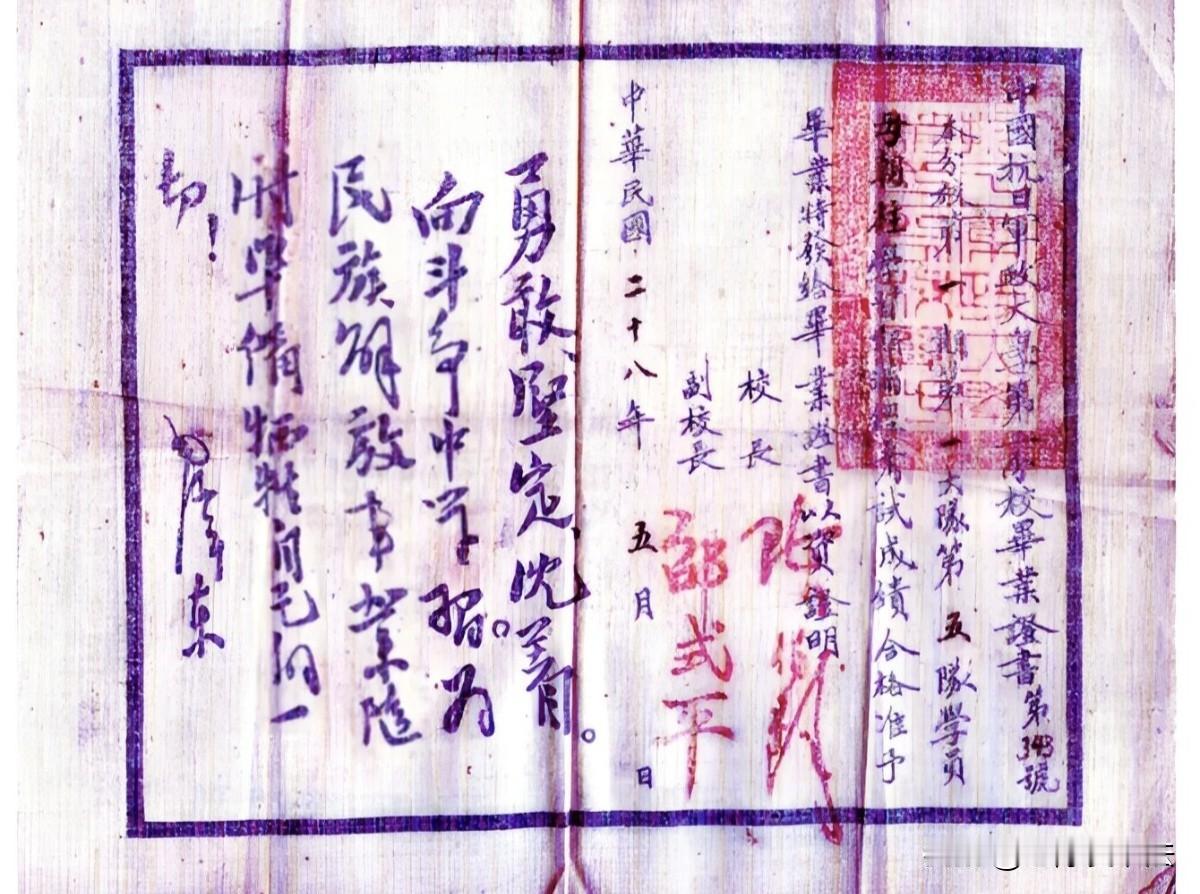 中國抗日軍政大學第一分校畢業證書第343號
本分校第一期第一大隊第五隊學員
朝柱學習期滿經考試成績合格准予
畢業特發給畢業證書以資證明
校長
副校長 邵式平
中華民國二十八年五月 日
勇敢、堅定、沈着。
向斗争中学習。为
民族解放事業隨
时準備牺牲自己的一
切！
毛澤東